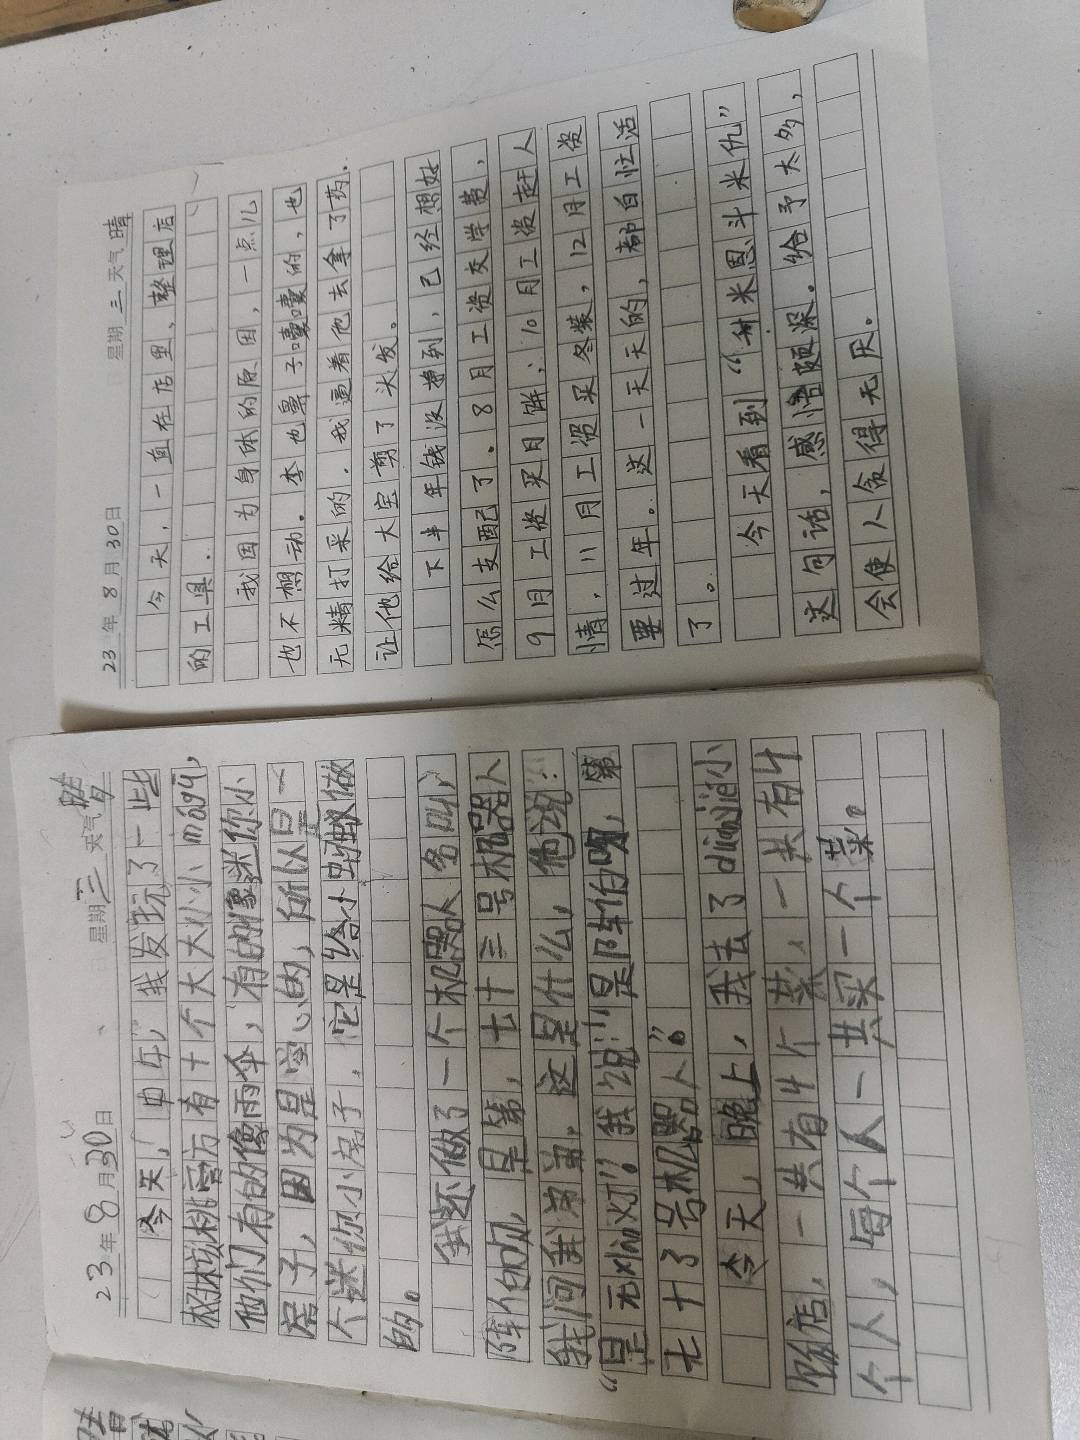 23年8月30日 星期三 天气晴
今天,一直在店里、整理店
的工具.
我因为身体的原因,一点儿
也不想动。李也鼻子囔囔的,也
无精打采的.我逼着他去拿了药.
让他给大宝剪了头发。
下半年钱没挣到,已经想好
怎么支配了.8月工资交学费,
9月工资买月饼、10月工资赶人
情,11月工资买冬装,12月工资
要过年。这一天天的,都白忙活
了。
今天看到“升米恩斗米仇”
这句话,感悟颇深。给予太多,
会使人贪得无厌。
23年8月30日 星期三 天气
今天,中午,我发现了一些
核桃
方有十个大大小小mógū,
他们有的像雨伞,有的像迷你小
房子,因为是空心的,所以是一
个迷你小房子,它是给小蚂蚁做
的。
我还做了一个机器人名叫,
阵白向,是第,七十三号机器人
我问我弟弟,这是什么,他说:
“是无
我说:“是阵白
第
七十了号机器人。”
今天,晚上,我去了
小
饭店,一共有4个菜,一共有4
个人,每个人一共买一个菜。